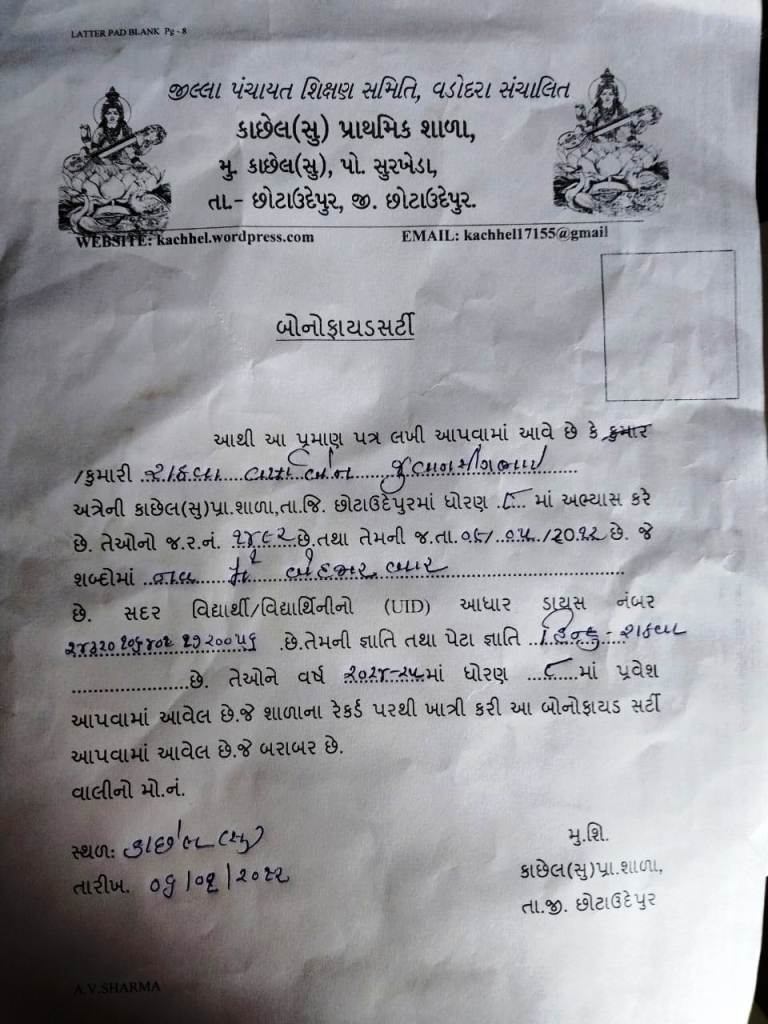 LATTER PAD BLANK Pg - 8
જીલ્લા પંચાયત શિક્ષણ સમિતિ, વડોદરા સંચાલિત
કાછેલ(સુ) પ્રાથમિક શાળા,
મુ. કાછેલ(સુ), પો. સુરખેડા,
તા.- છોટાઉદેપુર, જી. છોટાઉદેપુર.
WEBSITE: kachhel.wordpress.com EMAIL: kachhel17155@gmail
બોનોફાયડસર્ટી
આથી આ પ્રમાણ પત્ર લખી આપવામાં આવે છે કે કુમાર
/કુમારી રાઠવા
અત્રેની કાછેલ(સુ)પ્રા.શાળા,તા.જિ. છોટાઉદેપુરમાં ધોરણ ..૮... માં અભ્યાસ કરે
છે. તેઓનો જ.ર.નં. છે.તથા તેમની જ.તા. /૦૫./૨0૧૨ છે. જે
શબ્દોમાં બે હજાર બાર
છે. સદર વિદ્યાર્થી/વિદ્યાર્થિનીનો (UID) આધાર ડાયસ નંબર
.છે.તેમની જ્ઞાતિ તથા પેટા જ્ઞાતિ ..હિન્દુ - રાઠવા
.....................છે. તેઓને વર્ષ .૨૦૨૪-૨૫.માં ધોરણ ...૮....માં પ્રવેશ
આપવામાં આવેલ છે.જે શાળાના રેકર્ડ પરથી ખાત્રી કરી આ બોનોફાયડ સર્ટી
આપવામાં આવેલ છે.જે બરાબર છે.
વાલીનો મો.નં.
સ્થળ: કાછેલ (સુ)
તારીખ.
મુ.શિ.
કાછેલ(સુ)પ્રા.શાળા,
તા.જી. છોટાઉદેપુર
A.V.SHARMA